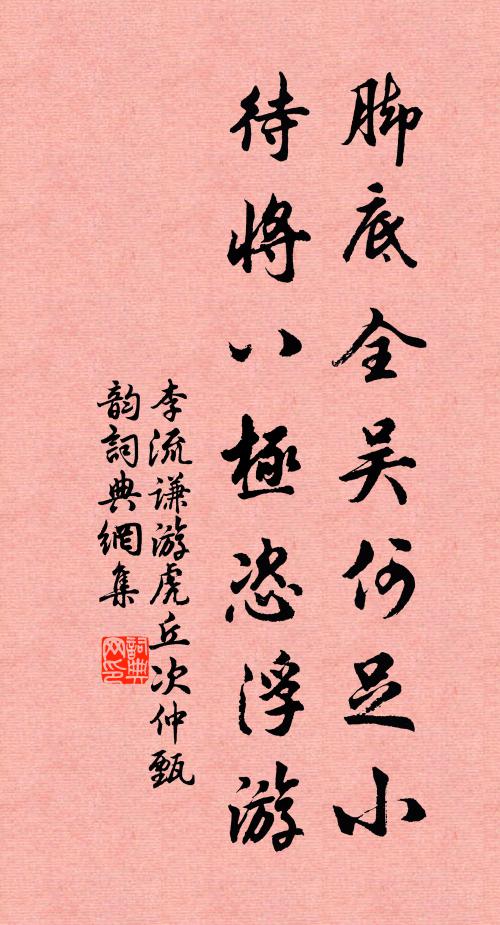 脚底全吴何足小
待將八極恣浮游
李流谦游虎丘次仲甄
韵詞典網集
詞典网印